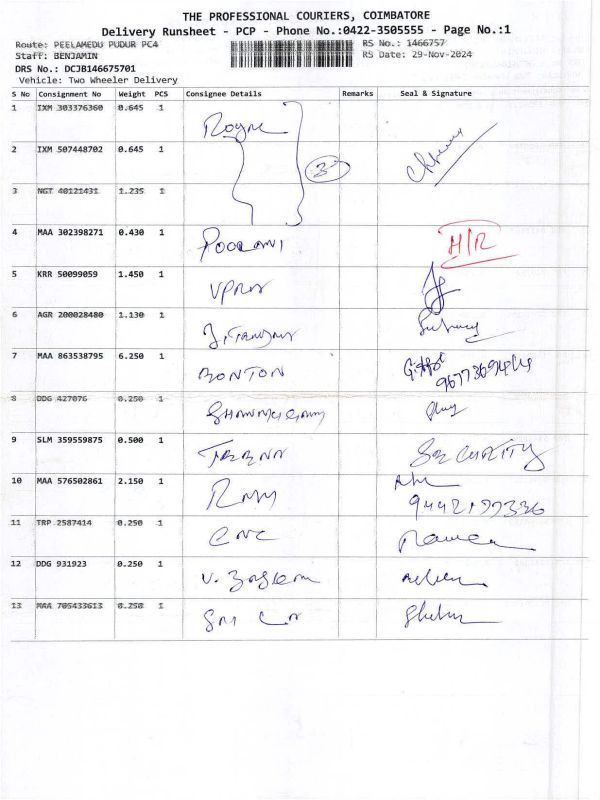 THE PROFESSIONAL COURIERS, COIMBATORE
Delivery Runsheet - PCP - Phone No.:0422-3505555 - Page No.:1
Route: PEELAMEDU PUDUR PC4 RS No.: 1466757
Staff: BENJAMIN RS Date: 29-Nov-2024
DRS No.: DCJB146675701
Vehicle: Two Wheeler Delivery
S No Consignment No Weight PCS Consignee Details Remarks Seal & Signature
1 IXM 303376360 0.645 1
2 IXM 507448702 0.645 1
3 NGT 40121431 1.235 1
4 MAA 302398271 0.430 1 POORANI H/R
5 KRR 50099059 1.450 1
6 AGR 200028480 1.130 1
7 MAA 863538795 6.250 1 BONTON
8 DDG 427076 0.250 1
9 SLM 359559875 0.500 1 SECURITY
10 MAA 576502861 2.150 1
11 TRP 2587414 0.250 1
12 DDG 931923 0.250 1
13 MAA 705433613 0.250 1